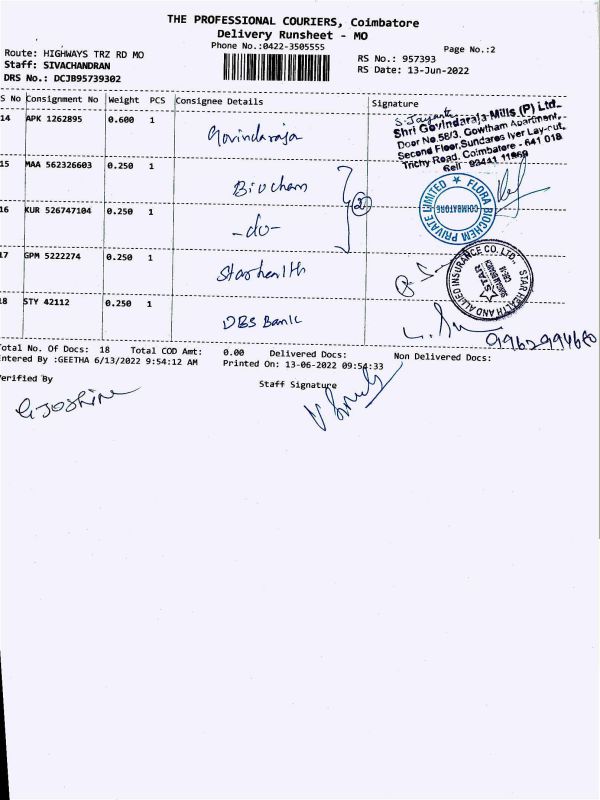 THE PROFESSIONAL COURIERS, Coimbatore
Delivery Runsheet - MO
Phone No.:0422-3505555
Page No.:2
Route: HIGHWAYS TRZ RD MO
RS No.: 957393
Staff: SIVACHANDRAN
RS Date: 13-Jun-2022
DRS No.: DCJB95739302
S No Consignment No Weight PCS Consignee Details Signature
14 APK 1262895 0.600 1 Govindaraja
S. Jayanta
Shri Govindaraja Mills (P) Ltd.,
Door No.58/3, Gowtham Apartment,
Second Floor, Sundares Iyer Lay-out,
Trichy Road, Coimbatore - 641 018
Cell: 93441 11969
15 MAA 562326603 0.250 1 Biochem
2
FLORA BIOCHEM PRIVATE LIMITED ★
COIMBATORE
16 KUR 526747104 0.250 1 -do-
17 GPM 5222274 0.250 1 Starhealth
STAR HEALTH AND ALLIED INSURANCE CO. LTD.,
18 STY 42112 0.250 1 DBS Bank
9962994680
Total No. Of Docs: 18 Total COD Amt: 0.00 Delivered Docs: Non Delivered Docs:
Entered By :GEETHA 6/13/2022 9:54:12 AM Printed On: 13-06-2022 09:54:33
Verified By Staff Signature